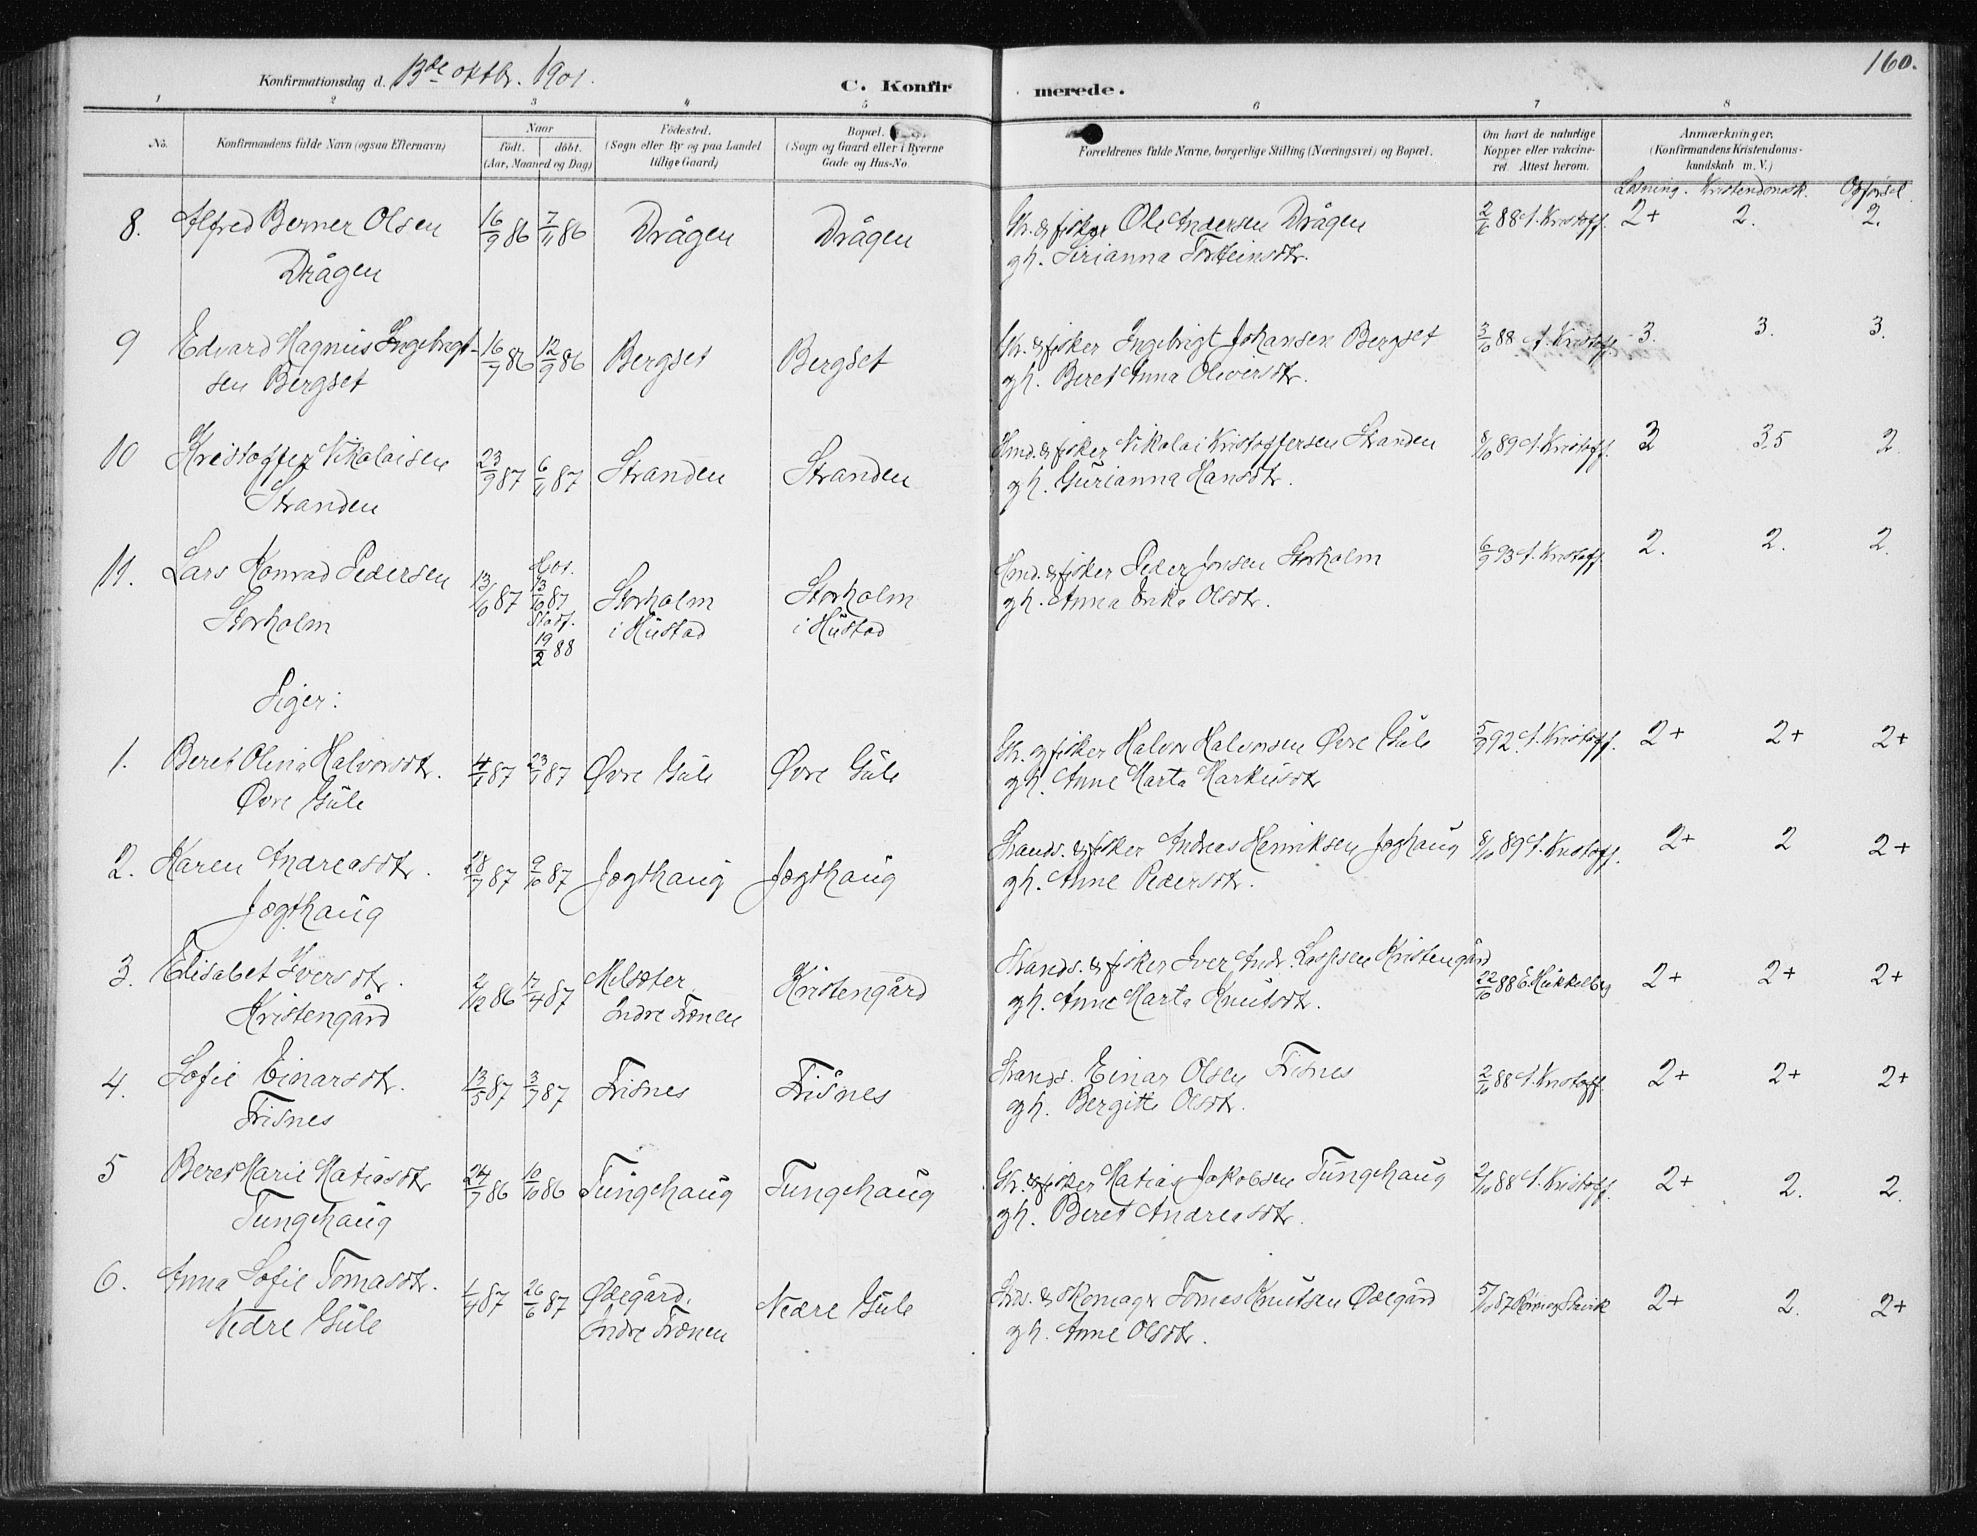 160.
Konfirmationsdag d. 13de oktbr. 1901.
C. Konfirmerede.
1 2 3 4 5 6 7 8
No.
Konfirmandens fulde Navn (ogsaa Efternavn)
Naar
født. døbt.
(Aar, Maaned og Dag)
Fødested.
(Sogn eller By og paa Landet
tillige Gaard)
Bopæl.
(Sogn og Gaard eller i Byerne
Gade og Hus-No
Forældrenes fulde Navne, borgerlige Stilling (Næringsvei) og Bopæl.
Om havt de naturlige
Kopper eller vakcine-
ret. Attest herom.
Anmærkninger.
(Konfirmandens Kristendoms-
kundskab m. V.)
Læsning. Kristendomsk. Opførsel.
8. Alfred Berner Olsen 16/9 86 7/11 86 Drågen Drågen Gbr. & fisker Ole Andersen Drågen 2/10 88 A. Kristoff. 2+ 2. 2.
Drågen gh. Sirianna Torsteinsdtr.
9 Edvard Magnus Ingebrigt- 16/7 86 12/9 86 Bergset Bergset Gbr. & fisker Ingebrigt Johansen Bergset 3/10 88 A. Kristoff. 3. 3. 3.
sen Bergset gh. Beret Anna Oliversdtr.
10 Kristoffer Nikolaisen 23/9 87 6/11 87 Stranden Stranden Hmd. & fisker Nikolai Kristoffersen Stranden 8/10 89 A. Kristoff. 3 3,5 2
Stranden gh. Gurianna Hansdtr.
11. Lars Konrad Pedersen 13/10 87 Hds. 13/10 87 Stadf. 19/2 88 Storholm Storholm Hmd. & fisker Peder Jonsen Storholm 6/9 93 A. Kristoff. 2. 2. 2.
Storholm i Hustad i Hustad gh. Anna Erika Olsdtr.
Piger:
1. Beret Olina Halvorsdtr. 4/1 87 23/1 87 Øvre Gule Øvre Gule Gbr. og fisker Halvor Halvorsen Øvre Gule 5/9 92 A. Kristoff. 2+ 2+ 2+
Øvre Gule gh. Anne Marta Markusdtr
2. Karen Andreasdtr. 28/7 87 9/10 87 Jægthaug Jægthaug Strands. & fisker Andreas Henriksen Jægthaug 8/10 89 A. Kristoff. 2+ 2 2+
Jægthaug gh. Anne Pedersdtr.
3. Elisabet Iversdtr. 2/12 86 17/4 87 Melsæter Kristengård Strands. & fisker Iver Andr. Lassesen Kristengård 22/10 88 E. Hukkelberg 2+ 2+ 2+
Kristengård Indre Frænen gh. Anne Marta Knutsdtr.
4. Sofie Einarsdtr. 13/5 87 3/7 87 Frisnes Frisnes Strands. Einar Olsen Frisnes 2/10 88 A. Kristoff. 2+ 2+ 2+
Frisnes gh. Bergitte Olsdtr.
5 Beret Marie Matiasdtr 24/7 86 10/10 86 Tungehaug Tungehaug Gbr. & fisker Matias Jakobsen Tungehaug 2/10 88 A. Kristoff. 2+ 2. 2.
Tungehaug gh. Beret Andreasdtr.
6. Anna Sofie Tomasdtr. 1/4 87 26/6 87 Ødegård, Nedre Gule Strds. & skomager Tomas Knutsen Ødegård 2+ 2. 2+
Nedre Gule Indre Frænen gh. Anne Olsdtr.